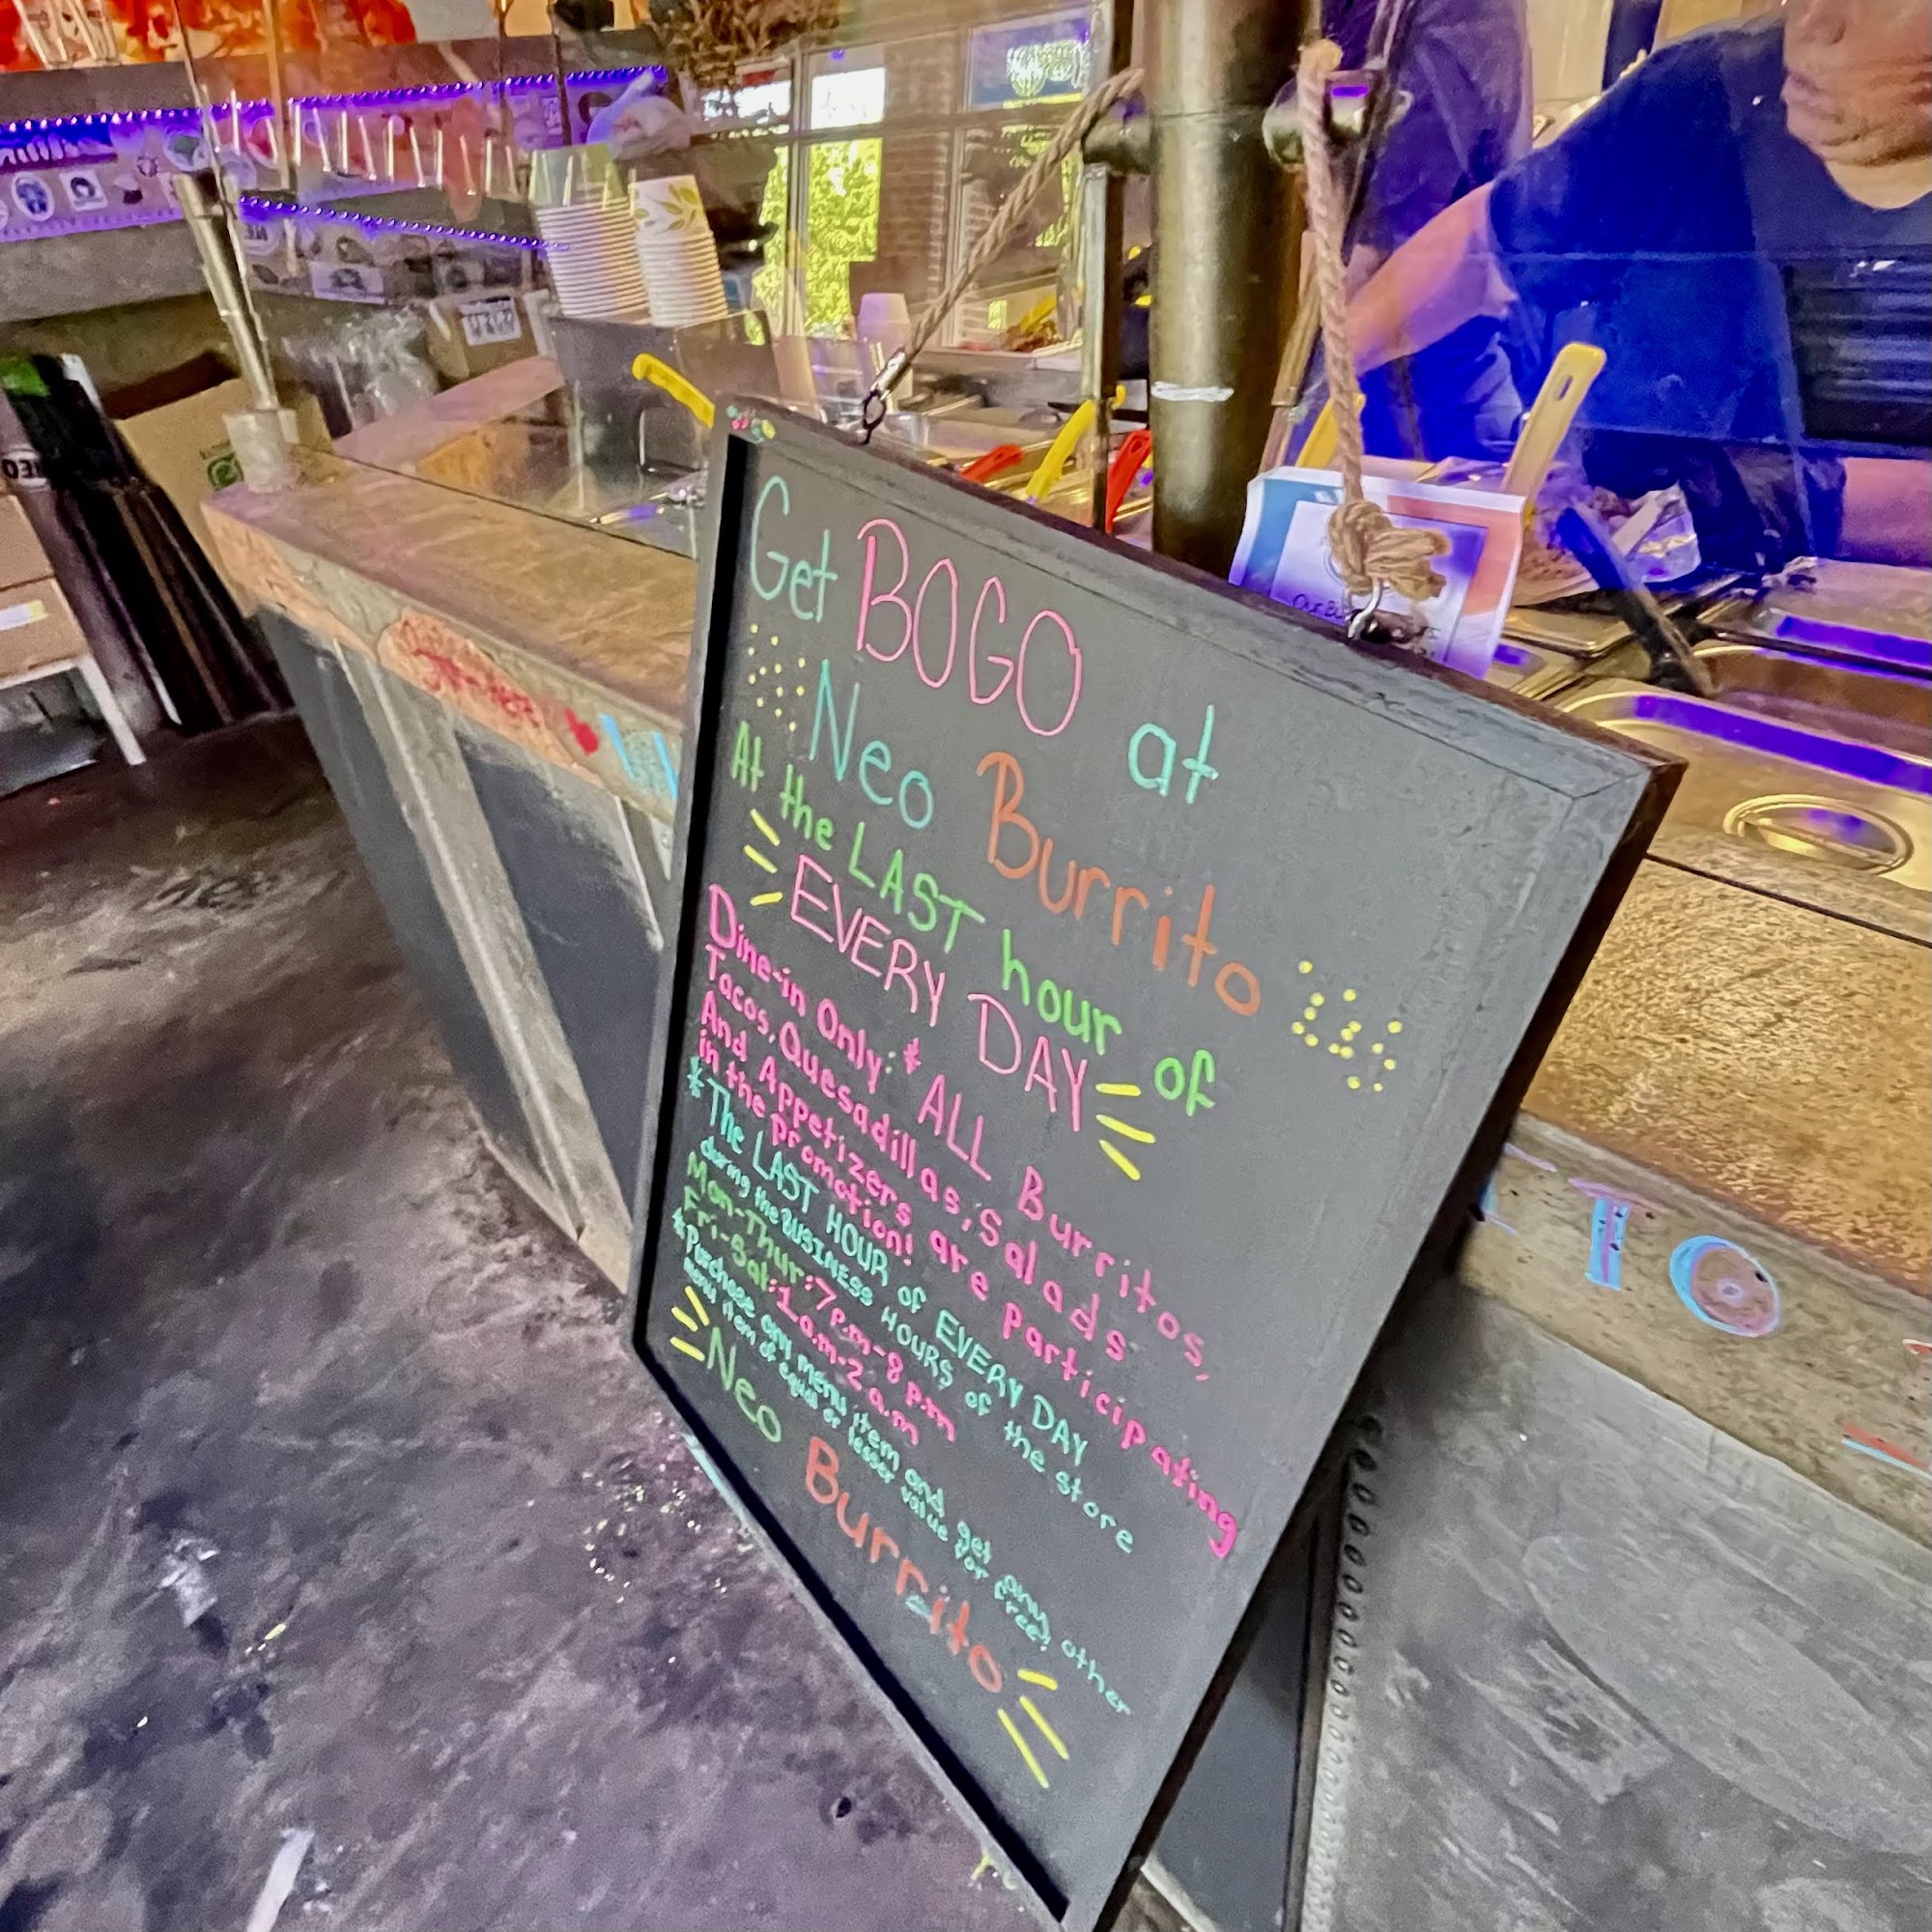 Get BOGO at
Neo Burrito
At the LAST hour of
EVERY DAY
Dine-in Only: * ALL Burritos,
Tacos, Quesadillas, Salads
And Appetizers are participating
in the promotion!
*The LAST HOUR of EVERY DAY
during the BUSINESS HOURS of the store
Mon-Thur: 7p.m-8p.m
Fri-Sat: 1a.m-2a.m
*Purchase any menu item and get any other
menu item of equal or lesser value for free!
Neo Burrito
TO